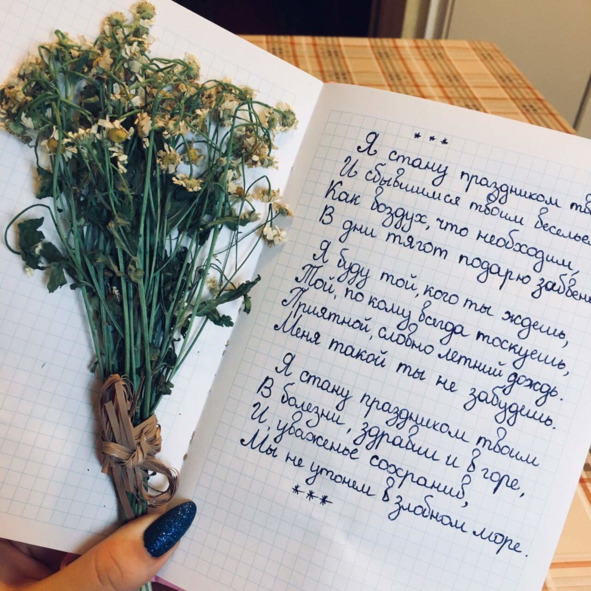 ***
Я стану праздником
И сбывшимся твоим
Как воздух, что необходим,
В дни тягот подарю
Я буду той, кого ты ждешь,
Той, по кому всегда тоскуешь,
Приятной, словно летний дождь.
Меня такой ты не забудешь.
Я стану праздником твоим
В болезни, здравии и в горе,
И, уваженье сохранив,
Мы не утонем в злобном море.
***